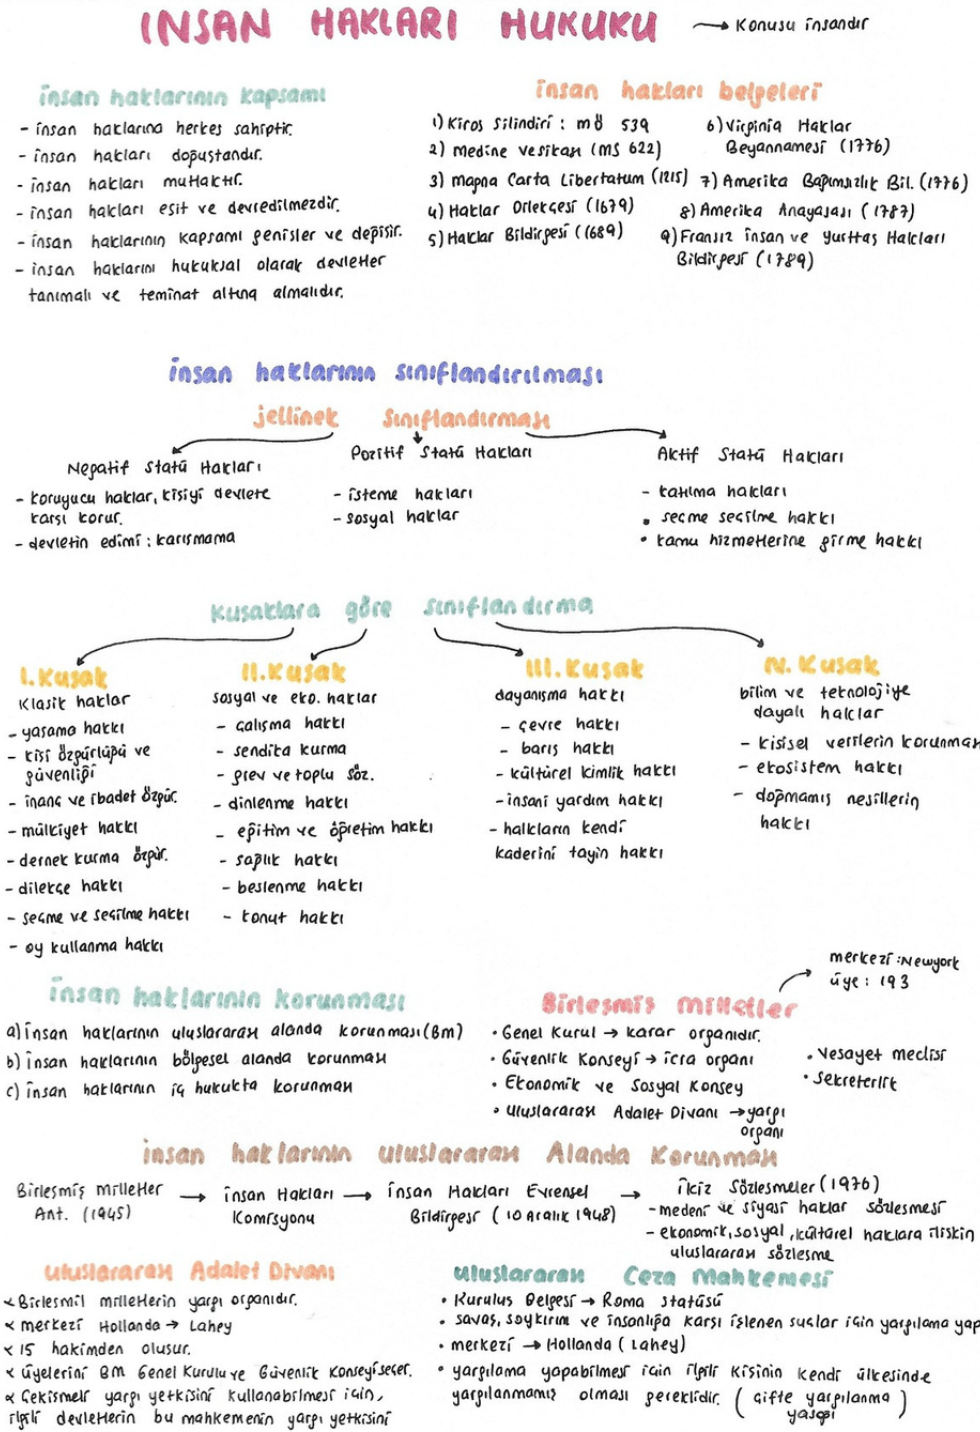 İNSAN HAKLARI HUKUKU → Konusu insandır
insan haklarının kapsamı
- insan haklarına herkes sahiptir.
- insan hakları doğuştandır.
- insan hakları mutlaktır.
- insan hakları eşit ve devredilmezdir.
- insan haklarının kapsamı genişler ve değişir.
- insan haklarını hukuksal olarak devletler
tanımalı ve teminat altına almalıdır.
insan hakları belgeleri
1) Kiros Silindiri : mö 539
2) Medine Vesikası (MS 622)
3) Magna Carta Libertatum (1215)
4) Haklar Dilekçesi (1679)
5) Haklar Bildirgesi (1689)
6) Virginia Haklar
Beyannamesi (1776)
7) Amerika Bağımsızlık Bil. (1776)
8) Amerika Anayasası (1787)
9) Fransız insan ve Yurttaş Hakları
Bildirgesi (1789)
insan haklarının sınıflandırılması
jellinek sınıflandırması
Negatif Statü Hakları
- koruyucu haklar, kişiyi devlete
karşı korur.
- devletin edimi : karışmama
Pozitif Statü Hakları
- isteme hakları
- sosyal haklar
Aktif Statü Hakları
- katılma hakları
• seçme seçilme hakkı
• kamu hizmetlerine girme hakkı
Kuşaklara göre sınıflandırma
I. Kuşak
Klasik haklar
- yaşama hakkı
- kişi özgürlüğü ve
güvenliği
- inanç ve ibadet özgür.
- mülkiyet hakkı
- dernek kurma özgür.
- dilekçe hakkı
- seçme ve seçilme hakkı
- oy kullanma hakkı
II. Kuşak
sosyal ve eko. haklar
- çalışma hakkı
- sendika kurma
- grev ve toplu söz.
- dinlenme hakkı
- eğitim ve öğretim hakkı
- sağlık hakkı
- beslenme hakkı
- konut hakkı
III. Kuşak
dayanışma hakkı
- çevre hakkı
- barış hakkı
- kültürel kimlik hakkı
- insani yardım hakkı
- halkların kendi
kaderini tayin hakkı
IV. Kuşak
bilim ve teknolojiye
dayalı haklar
- kişisel verilerin korunması
- ekosistem hakkı
- doğmamış nesillerin
hakkı
insan haklarının korunması
a) insan haklarının uluslararası alanda korunması (Bm)
b) insan haklarının bölgesel alanda korunması
c) insan haklarının iç hukukta korunması
Birleşmiş Milletler
merkezi : Newyork
üye : 193
• Genel Kurul → karar organıdır.
• Güvenlik Konseyi → icra organı
• Ekonomik ve Sosyal Konsey
• Uluslararası Adalet Divanı → yargı
organı
• Vesayet meclisi
• Sekreterlik
insan haklarının uluslararası Alanda Korunması
Birleşmiş Milletler
Ant. (1945)
→ insan Hakları
Komisyonu
→ insan Hakları Evrensel
Bildirgesi (10 Aralık 1948)
→ ikiz Sözleşmeler (1976)
- medeni ve siyasi haklar sözleşmesi
- ekonomik, sosyal, kültürel haklara ilişkin
uluslararası sözleşme
uluslararası Adalet Divanı
< Birleşmil milletlerin yargı organıdır.
< merkezi Hollanda → Lahey
< 15 hakimden oluşur.
< üyelerini BM Genel Kurulu ve Güvenlik Konseyi seçer.
< Çekişmeli yargı yetkisini kullanabilmesi için,
ilgili devletlerin bu mahkemenin yargı yetkisini
uluslararası Ceza Mahkemesi
• Kuruluş Belgesi → Roma statüsü
• savaş, soykırım ve insanlığa karşı işlenen suçlar için yargılama yap
• merkezi → Hollanda (Lahey)
• yargılama yapabilmesi için ilgili kişinin kendi ülkesinde
yargılanmamış olması gereklidir. (çifte yargılanma
yasağı)